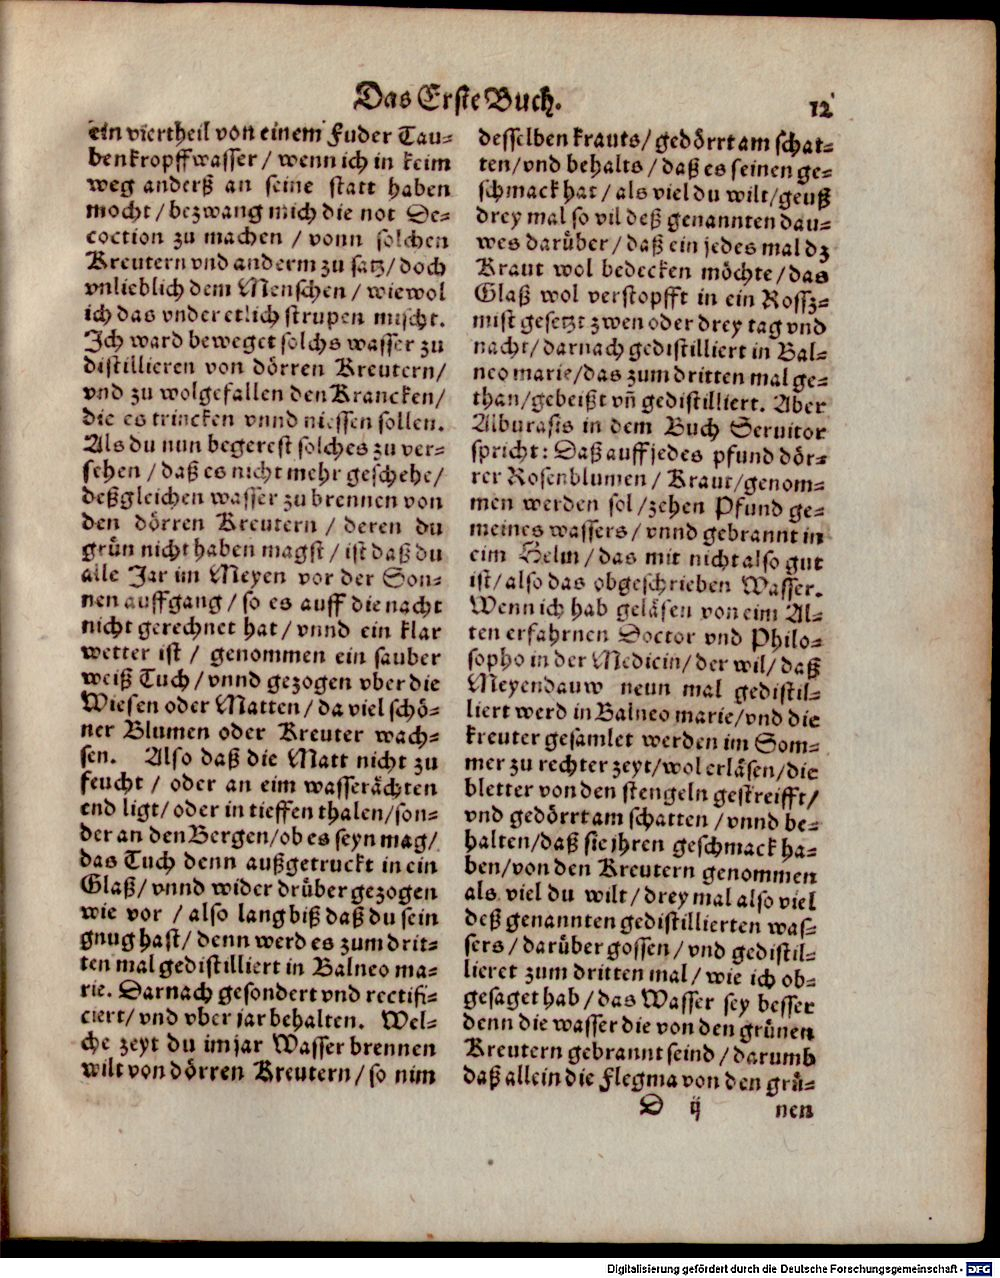 Das Erste Buch.
12
ein viertheil von einem Fuder Tau-
benkropffwasser / wenn ich in keim
weg anderß an seine statt haben
mocht / bezwang mich die not De-
coction zu machen / vonn solchen
Kreutern vnd anderm zu satz / doch
vnlieblich dem Menschen / wiewol
ich das vnder etlich strupen mischt.
Ich ward beweget solchs wasser zu
distillieren von dörren Kreutern /
vnd zu wolgefallen den Krancken /
die es trincken vnnd niessen sollen.
Als du nun begerest solches zu ver-
sehen / daß es nicht mehr geschehe /
deßgleichen wasser zu brennen von
den dörren Kreutern / deren du
grün nicht haben magst / ist daß du
alle Jar im Meyen vor der Son-
nen auffgang / so es auff die nacht
nicht gerechnet hat / vnnd ein klar
wetter ist / genommen ein sauber
weiß Tuch / vnnd gezogen vber die
Wiesen oder Matten / da viel schö-
ner Blumen oder Kreuter wach-
sen. Also daß die Matt nicht zu
feucht / oder an eim wasserächten
end ligt / oder in tieffen thalen / son-
der an den Bergen / ob es seyn mag /
das Tuch denn außgetruckt in ein
Glaß / vnnd wider drüber gezogen
wie vor / also lang biß daß du sein
gnug hast / denn werd es zum drit-
ten mal gedistilliert in Balneo ma-
rie. Darnach gesondert vnd rectifi-
ciert / vnd vber jar behalten. Wel-
che zeyt du im jar Wasser brennen
wilt von dörren Kreutern / so nim
desselben krauts / gedörrt am schat-
ten / vnd behalts / daß es seinen ge-
schmack hat / als viel du wilt / geuß
drey mal so vil deß genannten dau-
wes darüber / daß ein jedes mal dz
Kraut wol bedecken möchte / das
Glaß wol verstopfft in ein Rossz-
mist gesetzt zwen oder drey tag vnd
nacht / darnach gedistilliert in Bal-
neo marie / das zum dritten mal ge-
than / gebeißt vñ gedistilliert. Aber
Alburasis in dem Buch Seruitor
spricht: Daß auff jedes pfund dör-
rer Rosenblumen / Kraut / genom-
men werden sol / zehen Pfund ge-
meines wassers / vnnd gebrannt in
eim Helm / das mit nicht also gut
ist / also das obgeschrieben Wasser.
Wenn ich hab geläsen von eim Al-
ten erfahrnen Doctor vnd Philo-
sopho in der Medicin / der wil / daß
Meyendauw neun mal gedistil-
liert werd in Balneo marie / vnd die
kreuter gesamlet werden im Som-
mer zu rechter zeyt / wol erläsen / die
bletter von den stengeln gestreifft /
vnd gedörrt am schatten / vnnd be-
halten / daß sie jhren geschmack ha-
ben / von den Kreutern genommen
als viel du wilt / drey mal also viel
deß genannten gedistillierten was-
sers / darüber gossen / vnd gedistil-
lieret zum dritten mal / wie ich ob-
gesaget hab / das Wasser sey besser
denn die wasser die von den grünen
Kreutern gebrannt seind / darumb
daß allein die Flegma von den grü-
D ij nen
Digitalisierung gefördert durch die Deutsche Forschungsgemeinschaft - DFG